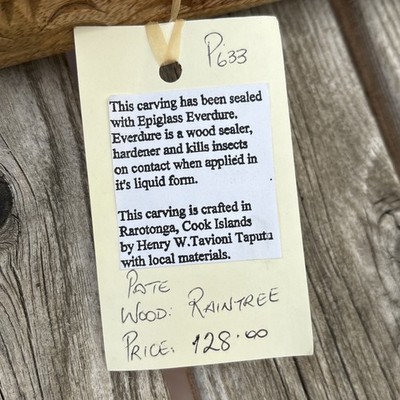 P633
This carving has been sealed
with Epiglass Everdure.
Everdure is a wood sealer,
hardener and kills insects
on contact when applied in
it's liquid form.
This carving is crafted in
Rarotonga, Cook Islands
by Henry W.Tavioni Taputu
with local materials.
PATE
WOOD: RAINTREE
PRICE: 128.00